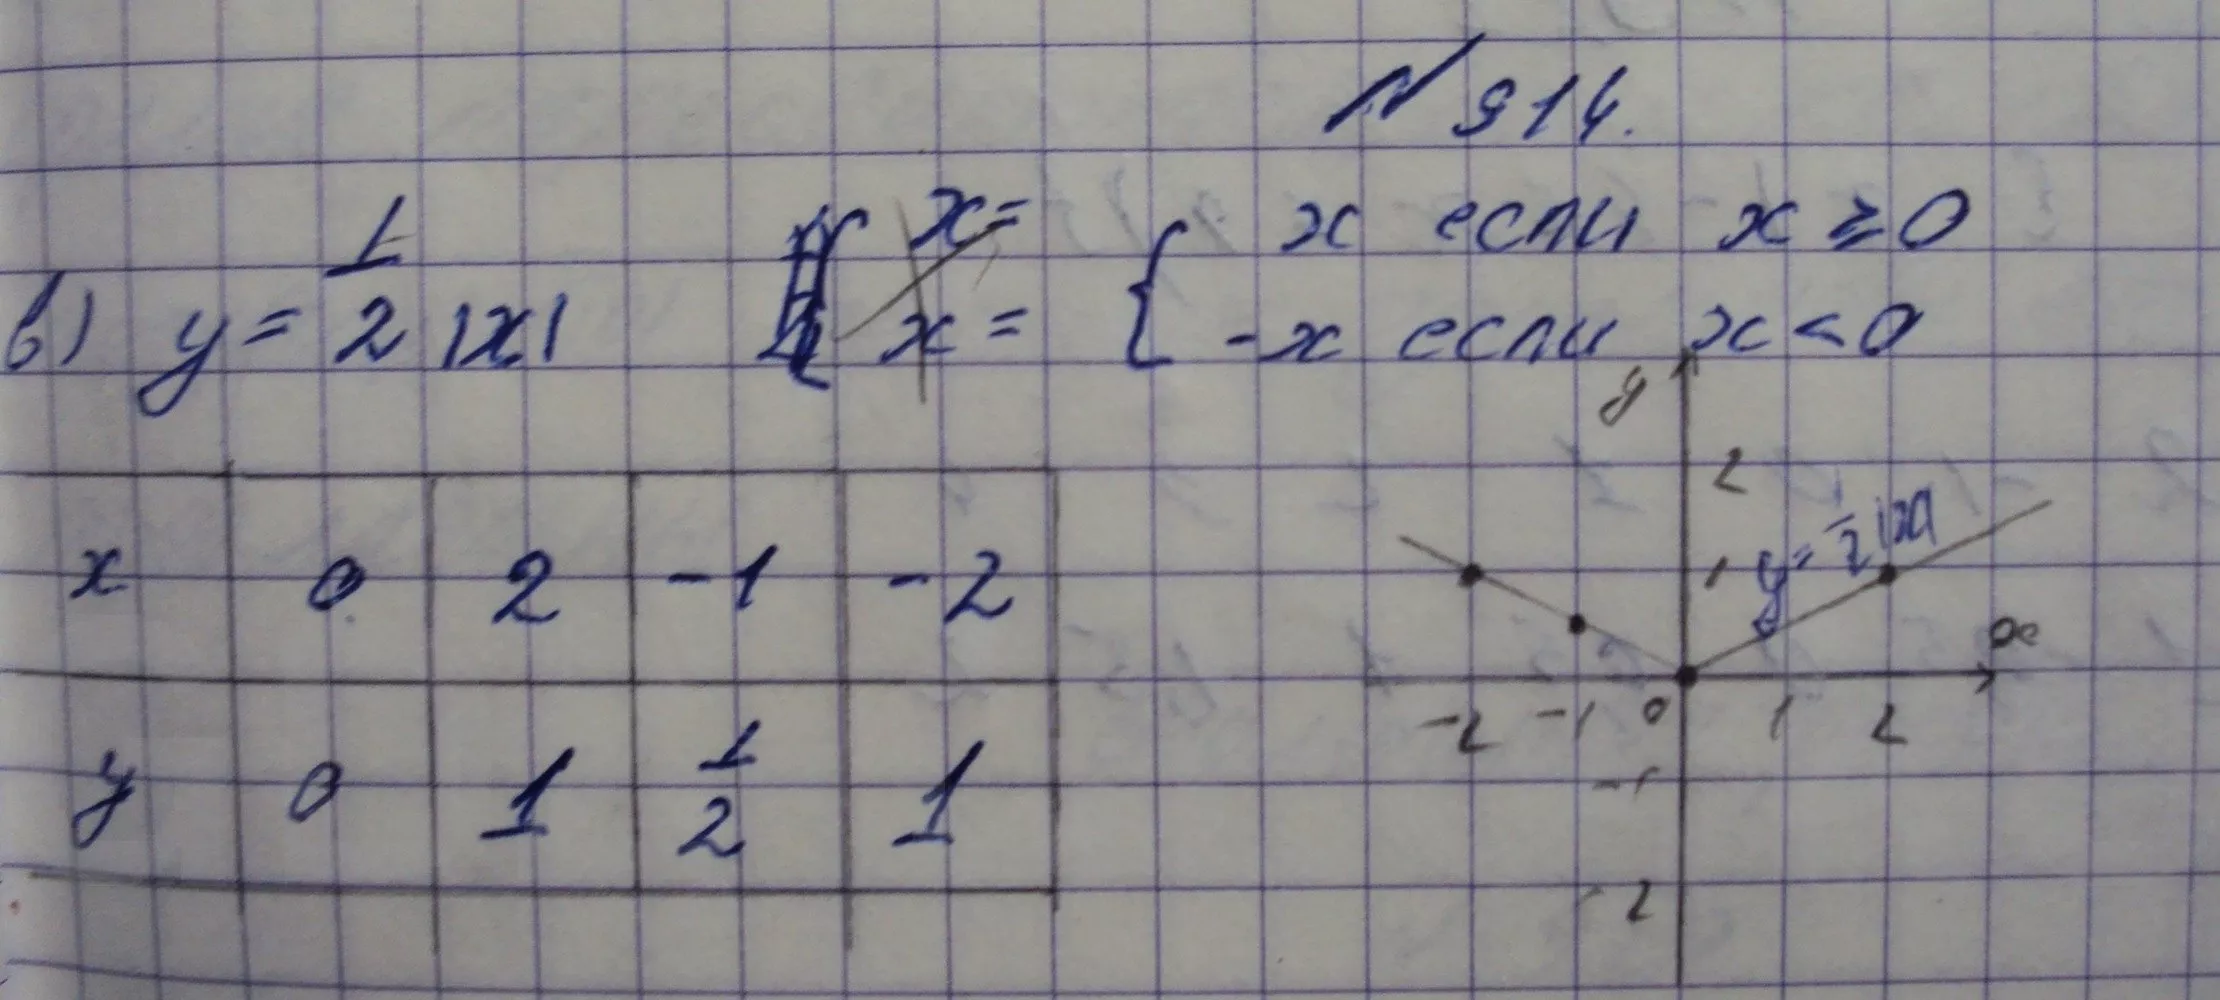 N 914.
в) y = 1/2 |x| x = { x если x ≥ 0
x = { -x если x < 0
x 0 2 -1 -2
y 0 1 1/2 1
y
2
1 y = 1/2 |x|
x
-2 -1 0 1 2
-1
-2